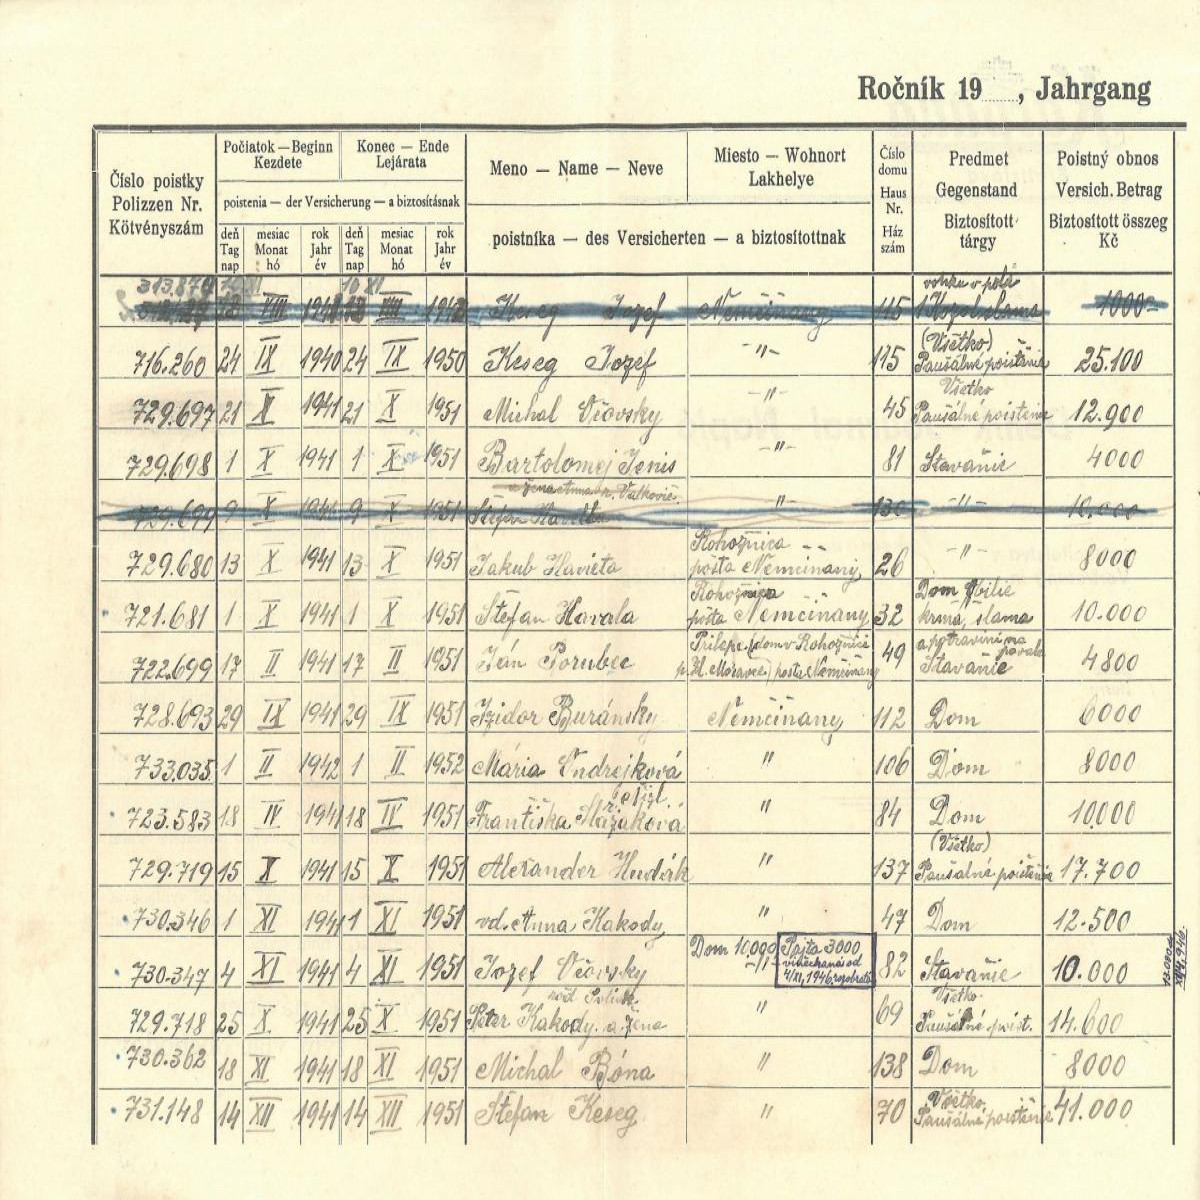 Ročník 19 , Jahrgang
Číslo poistky
Polizzen Nr.
Kötvényszám
Počiatok — Beginn
Kezdete
Konec — Ende
Lejárata
poistenia — der Versicherung — a biztosításnak
deň
Tag
nap
mesiac
Monat
hó
rok
Jahr
év
deň
Tag
nap
mesiac
Monat
hó
rok
Jahr
év
Meno — Name — Neve
Miesto — Wohnort
Lakhelye
poistníka — des Versicherten — a biztosítottnak
Číslo
domu
Haus
Nr.
Ház
szám
Predmet
Gegenstand
Biztosított
tárgy
Poistný obnos
Versich. Betrag
Biztosított összeg
Kč
313.870
XIII 1941 Keseg Jozef Nemčiňany 115 1000
716.260 24 IX 1940 24 IX 1950 Keseg Jozef -"- 115 (Všetko) Paušálné poistenie 25.100
729.697 21 X 1941 21 X 1951 Michal Včovsky -"- 45 Všetko Paušálné poistenie 12.900
729.698 1 X 1941 1 X 1951 Bartolomej Jenis -"- 81 Stavanie 4000
a žena Anna r. Valkovič
729.699 9 X 1941 9 X 1951 Štefan " 130 -"- 10.000
729.680 13 X 1941 13 X 1951 Jakub Havieta Rohožnica pošta Nemčiňany 26 -"- 8000
721.681 1 X 1941 1 X 1951 Štefan Havala Rohožnica pošta Nemčiňany 32 Dom obilie krmá, slama 10.000
a potraviny na povale
722.699 17 II 1941 17 II 1951 Ján Porubec Prilepe (dom v Rohožnici p. Zl. Moravce) pošta Nemčiňany 49 Stavanie 4800
728.693 29 IX 1941 29 IX 1951 Izidor Buránsky Nemčiňany 112 Dom 6000
733.035 1 II 1942 1 II 1952 Mária Ondrejková " 106 Dom 8000
723.583 18 IV 1941 18 IV 1951 Františka " 84 Dom 10.000
729.719 15 X 1941 15 X 1951 Alexander Hudák " 137 (Všetko) Paušálné poistenie 17.700
730.346 1 XI 1941 1 XI 1951 vd. Anna Kakody " 47 Dom 12.500
730.347 4 XI 1941 4 XI 1951 Jozef Včovsky Dom 10.000 -"- Pajta 3000 4/XI. 1946 82 Stavanie 10.000
729.718 25 X 1941 25 X 1951 Peter Kakody a žena " 69 Všetko Paušálné poist. 14.600
730.362 18 XI 1941 18 XI 1951 Michal Bóna " 138 Dom 8000
731.148 14 XII 1941 14 XII 1951 Štefan Keseg " 70 Všetko Paušálné poistenie 41.000